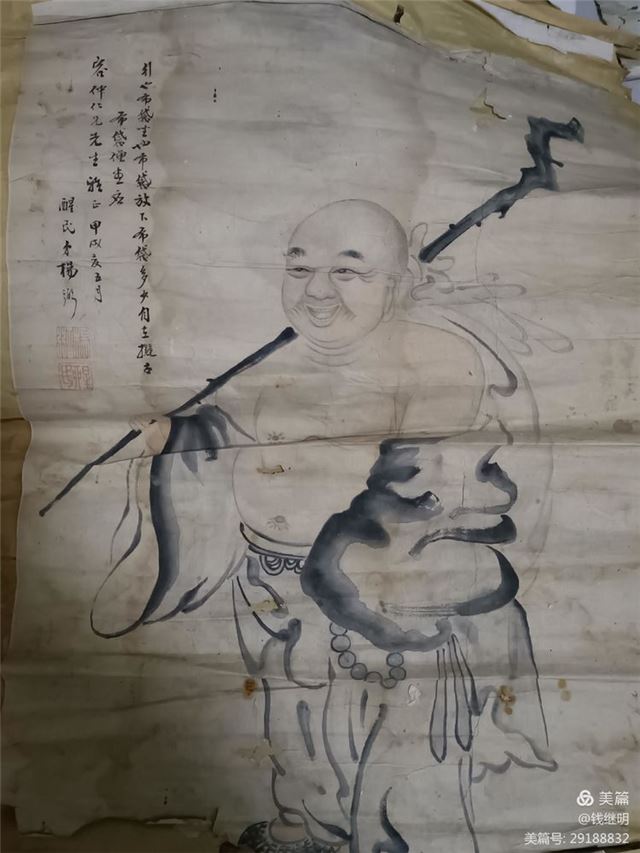 行也布袋坐也布袋放下布袋多少自在擬古
布袋僧
容仲仁兄先生雅正 甲戌夏五月
醒民弟楊
美篇
@钱继明
美篇号: 29188832